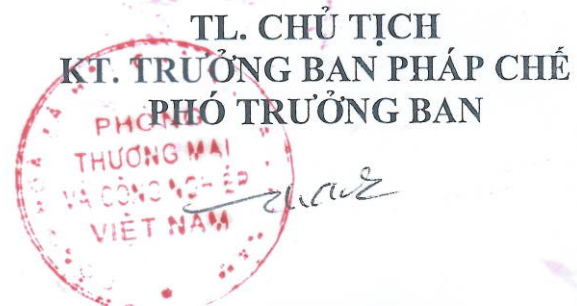 TL. CHỦ TỊCH
KT. TRƯỞNG BAN PHÁP CHẾ
PHÓ TRƯỞNG BAN
PHÒNG
THƯƠNG MẠI
VÀ CÔNG NGHIỆP
VIỆT NAM